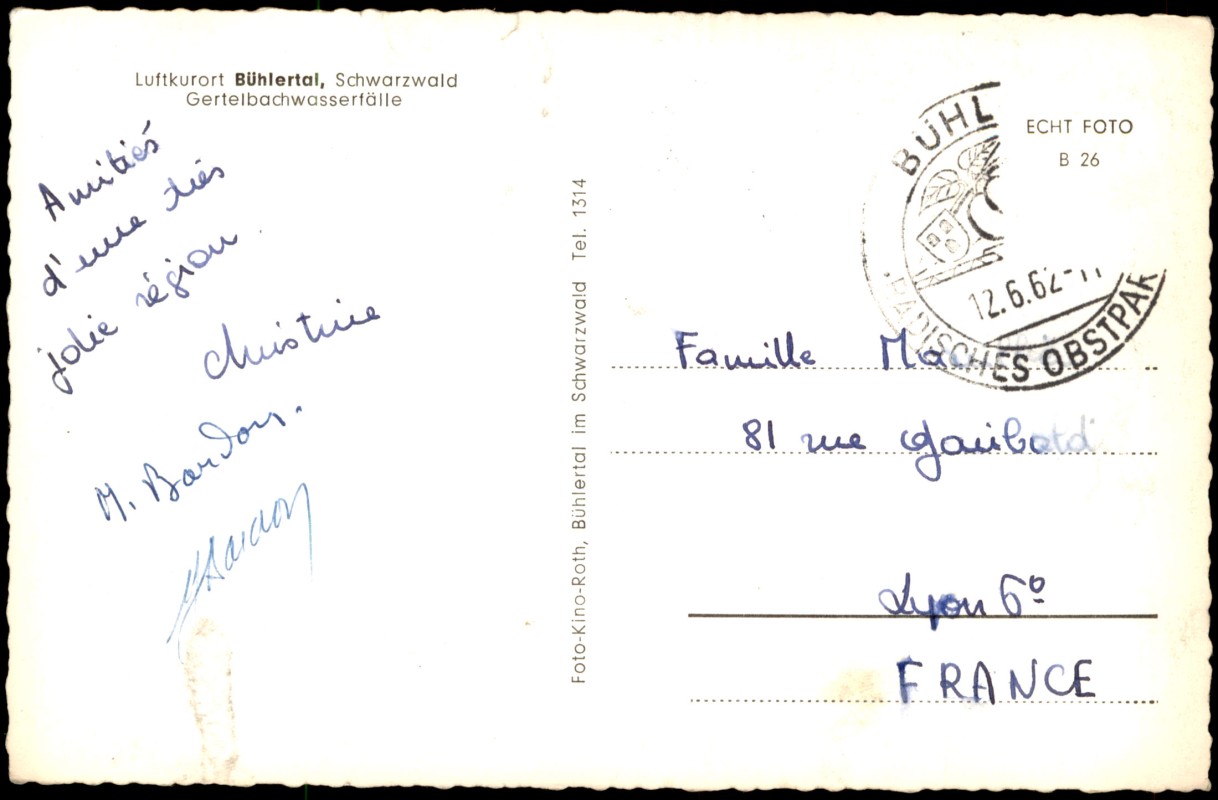 Luftkurort Bühlertal, Schwarzwald
Gertelbachwasserfälle
Amitiés
d'une très
jolie région.
Christine
M. Bardon.
Foto-Kino-Roth, Bühlertal im Schwarzwald Tel. 1314
BÜHL
12.6.62-11
BADISCHES OBSTPAR
ECHT FOTO
B 26
Famille
81 rue Garibaldi
Lyon 6º
FRANCE